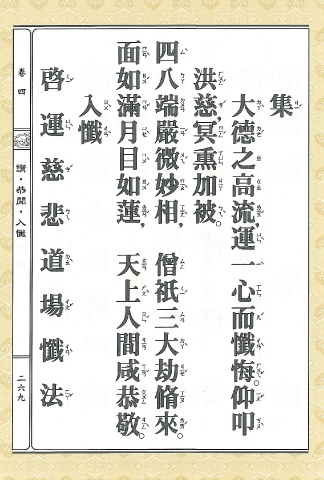 集
大德之高流，運一心而懺悔。仰叩
洪慈冥熏加被。
四八端嚴微妙相，　僧祇三大劫脩來。
面如滿月目如蓮，　天上人間咸恭敬。
入懺
啓運慈悲道場懺法
卷四
讚・恭聞・入懺
二六九